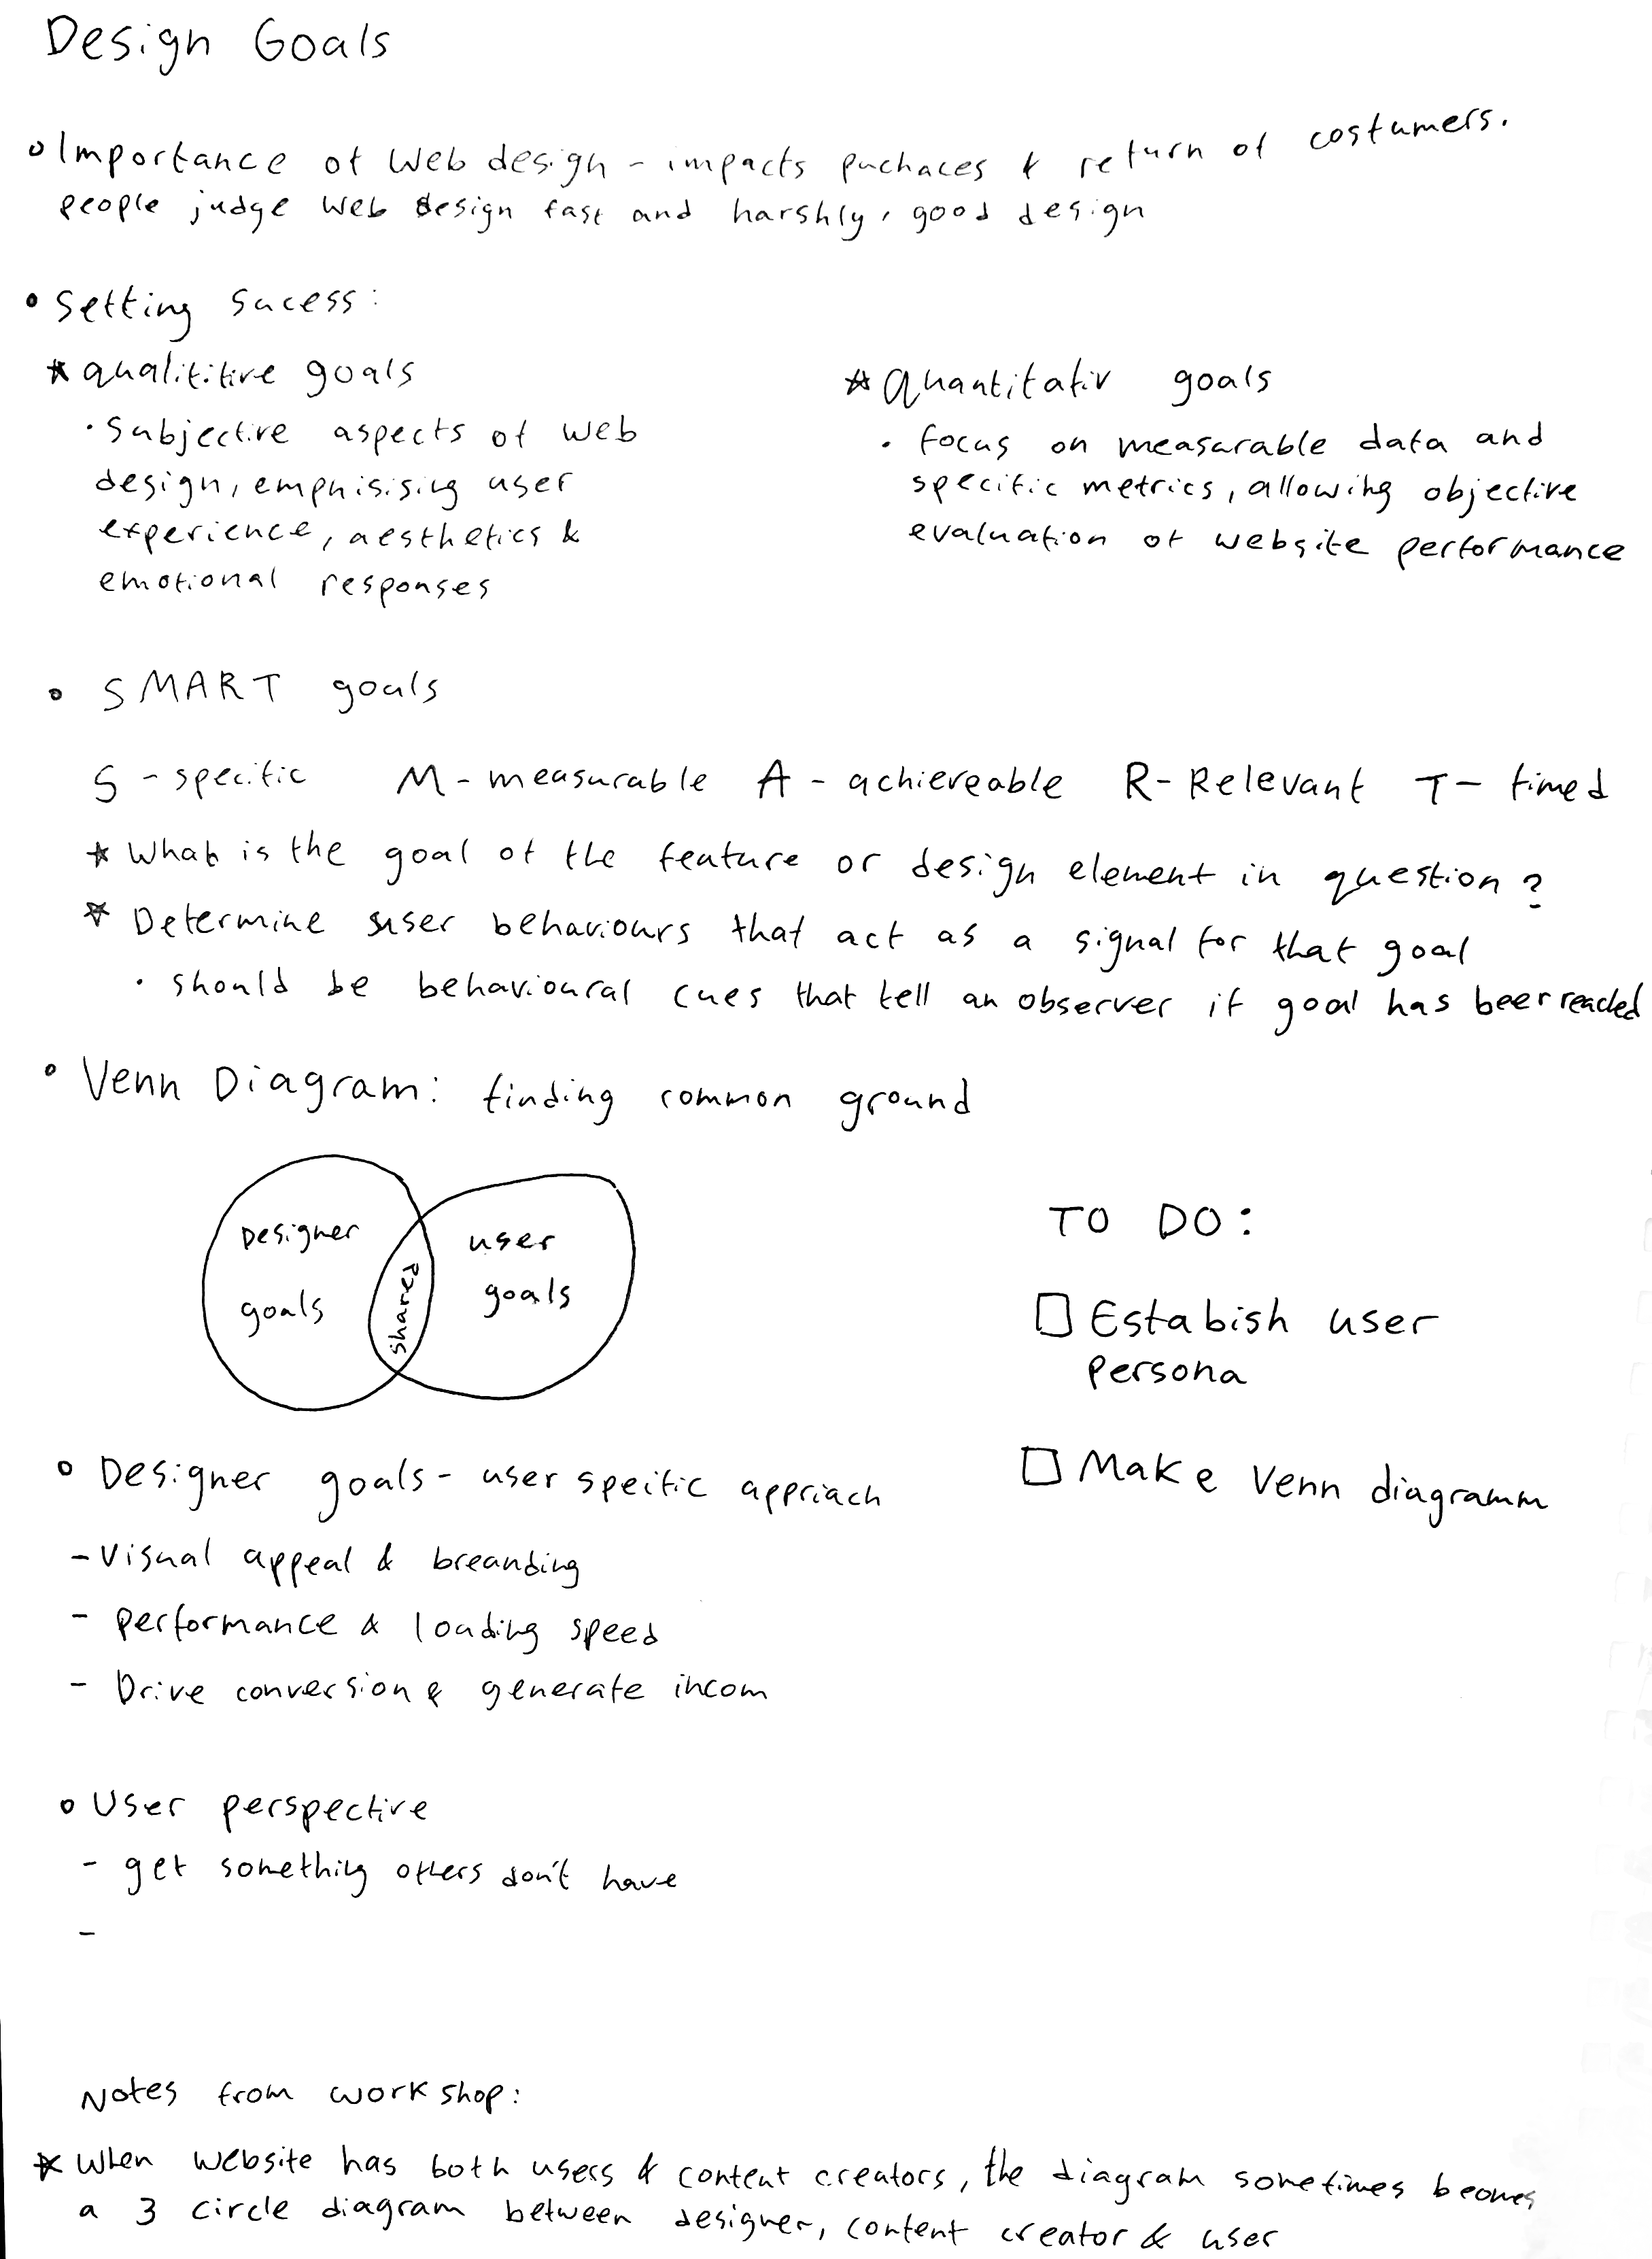 Design Goals
Importance of Web design - impacts puchaces & return of costumers.
people judge web design fast and harshly, good design
Setting sucess:
* qualititive goals
· Subjective aspects of web
design, emphisising user
experience, aesthetics &
emotional responses
* Quantitativ goals
· focus on measurable data and
specific metrics, allowing objective
evaluation of website performance
SMART goals
S - specific M - measurable A - achieveable R - Relevant T - timed
* What is the goal of the feature or design element in question?
* Determine user behaviours that act as a signal for that goal
· should be behavioural cues that tell an observer if goal has been reached
Venn Diagram: finding common ground
Designer
goals
shared
user
goals
TO DO:
Estabish user
persona
Make Venn diagramm
Designer goals - user speific appriach
- Visual appeal & breanding
- performance & loading speed
- Drive conversion & generate incom
User perspective
- get something others don't have
-
Notes from workshop:
* When website has both users & content creators, the diagram sometimes becomes
a 3 circle diagram between designer, content creator & user